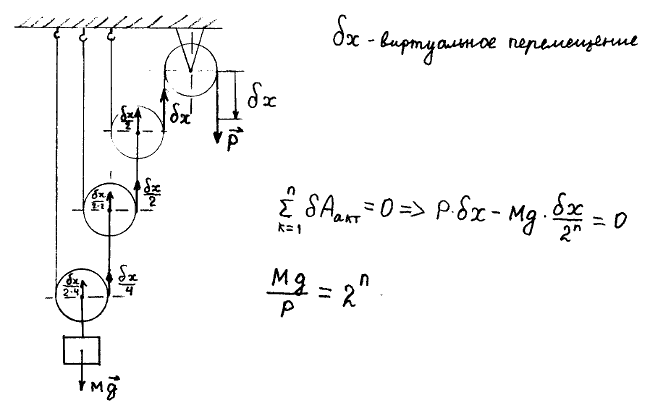 δx - виртуальное перемещение
δx
δx/2
δx
P⃗
δx/2·2
δx/2
δx/2·4
δx/4
Mg⃗
n
Σ δAакт = 0 => P·δx - Mg · δx/2ⁿ = 0
k=1
Mg/P = 2ⁿ